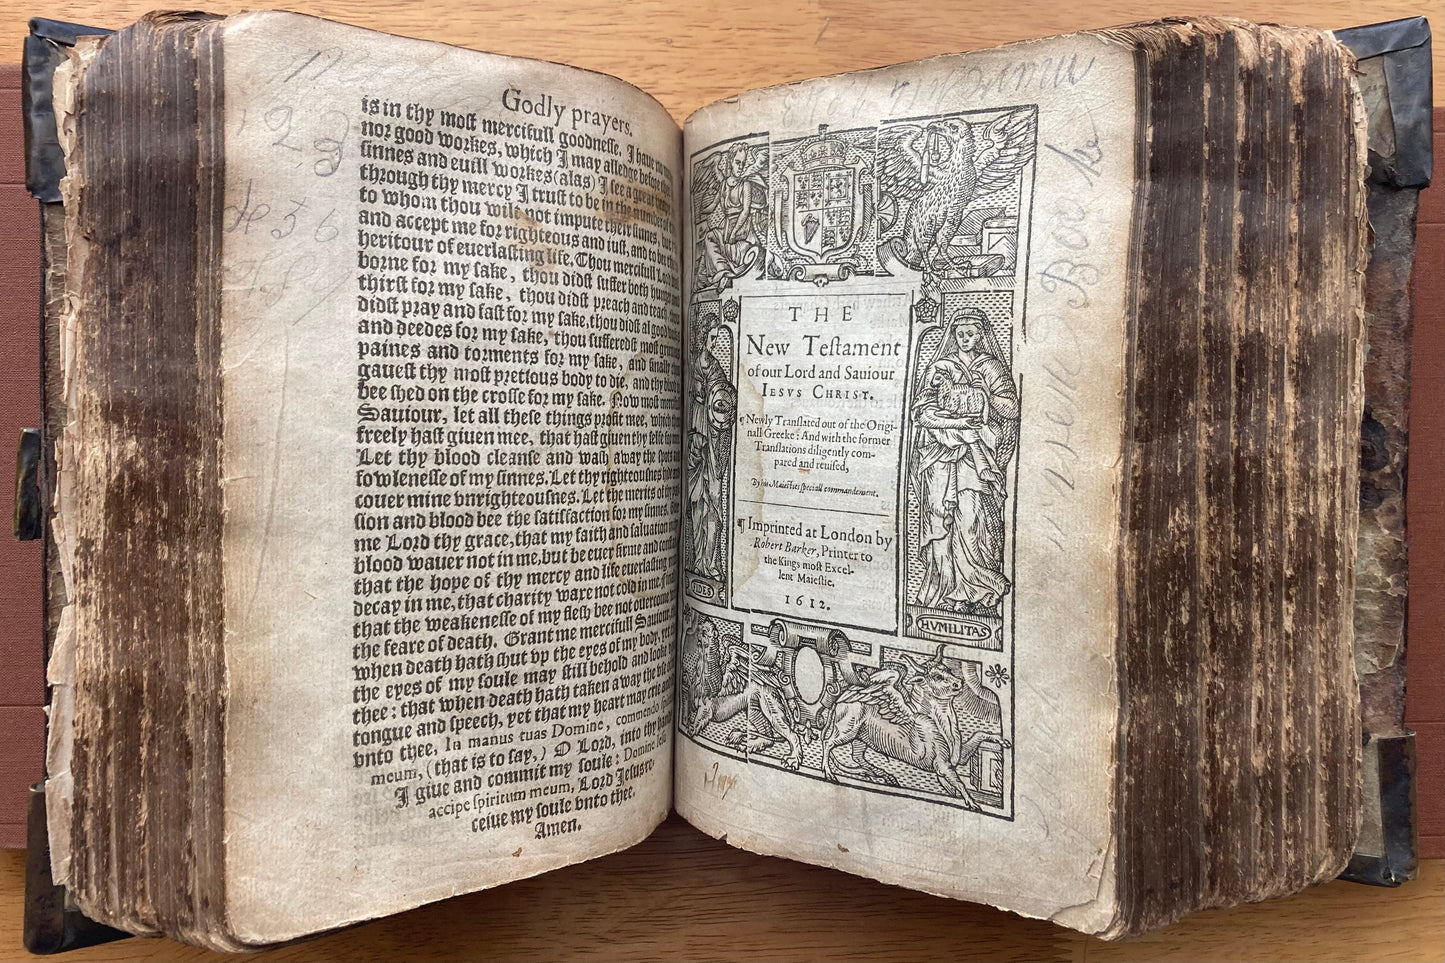 Godly prayers.
is in thy most mercifull goodnesse. I have no
nor good workes, which I may alledge before
sinnes and euill workes (alas) I see a great
through thy mercy I trust to be in the number of
to whom thou wilt not impute their sinnes, but
and accept me for righteous and iust, and to be
heritour of euerlasting life. Thou mercifull Lord
borne for my sake, thou didst suffer both hunger and
thirst for my sake, thou didst preach and teach
didst pray and fast for my sake, thou didst al good
and deedes for my sake, thou sufferedst most
paines and torments for my sake, and finally
gauest thy most pretious body to die, and thy blood
bee shed on the crosse for my sake. Now most
Sauiour, let all these things profit mee, which
freely hast giuen mee, that hast giuen thy selfe for
Let thy blood cleanse and wash away the spots and
fowlenesse of my sinnes. Let thy righteousnes hide and
couer mine vnrighteousnes. Let the merits of thy
sion and blood bee the satisfaction for my sinnes.
me Lord thy grace, that my faith and saluation in
blood wauer not in me, but be euer firme and
that the hope of thy mercy and life euerlasting
decay in me, that charity ware not cold in me,
that the weakenesse of my flesh bee not ouercome
the feare of death. Grant me mercifull Sauiour,
when death hath shut vp the eyes of my body, yet
the eyes of my soule may still behold and looke
thee: that when death hath taken away the
tongue and speech, yet that my heart may crie and
vnto thee, In manus tuas Domine, commendo
meum, (that is to say,) O Lord, into thy hands
I giue and commit my soule: Domine Iesu
accipe spiritum meum, Lord Iesus re-
ceiue my soule vnto thee.
Amen.
THE
New Testament
of our Lord and Sauiour
IESVS CHRIST.
¶ Newly Translated out of the Origi-
nall Greeke: And with the former
Translations diligently com-
pared and reuised,
By his Maiesties speciall commandement.
¶ Imprinted at London by
Robert Barker, Printer to
the Kings most Excel-
lent Maiestie.
1612.
FIDES
HVMILITAS